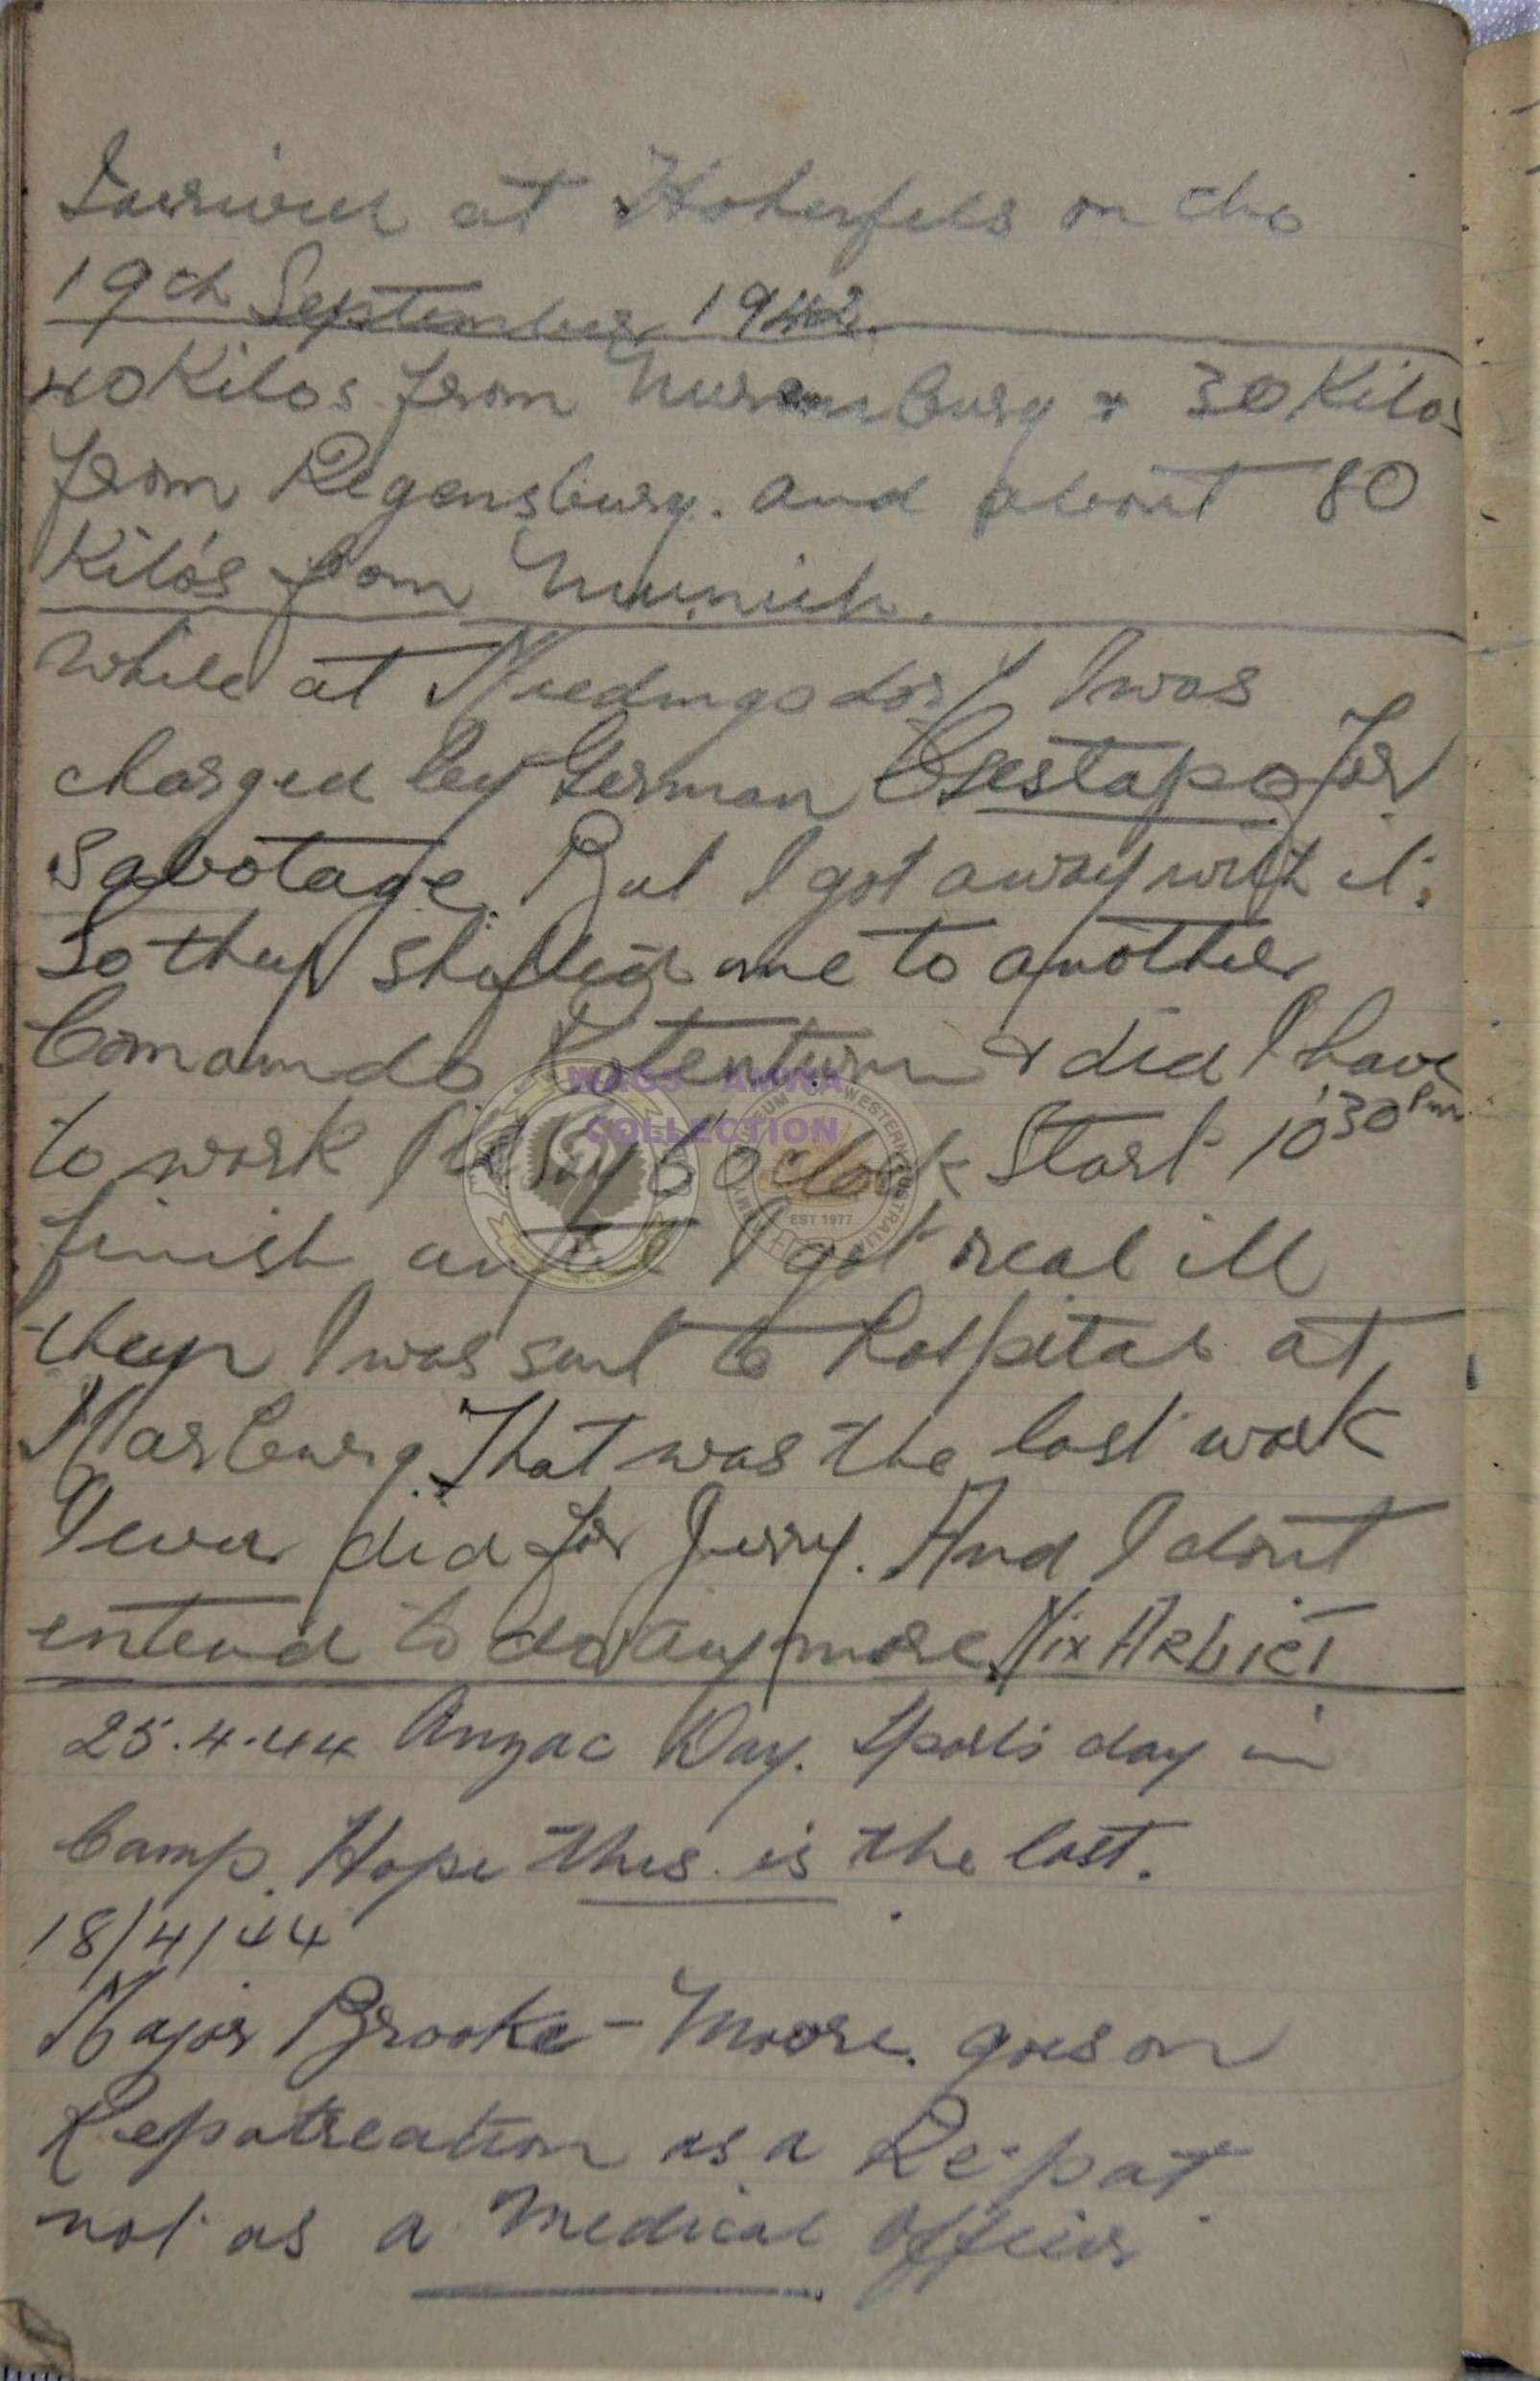 I arrived at Hohenfels on the
19th September 1942.
40 Kilos from Nuremburg + 30 Kilos
from Regensburg. and about 80
Kilo's from Munich.
While at I was
charged by German Gestapo for
Sabotage. But I got away with it.
So they shifted me to another
Comando + did I have
to work I'll say 6 Oclock Start 10.30 Pm
finish I got real ill
then I was sent to hospital at
Marburg. That was the last work
I ever did for Jerry. And I don't
entend to do any more. Nix ARbiet
25.4.44 Anzac Day. Sports day in
Camp. Hope this is the last.
18/4/44
Major Brooke-Moore. goes on
Repatreation as a Re-pat
not as a Medical Officer
WAGS AMWA
COLLECTION
WESTERN AUSTRALIA
EST 1977